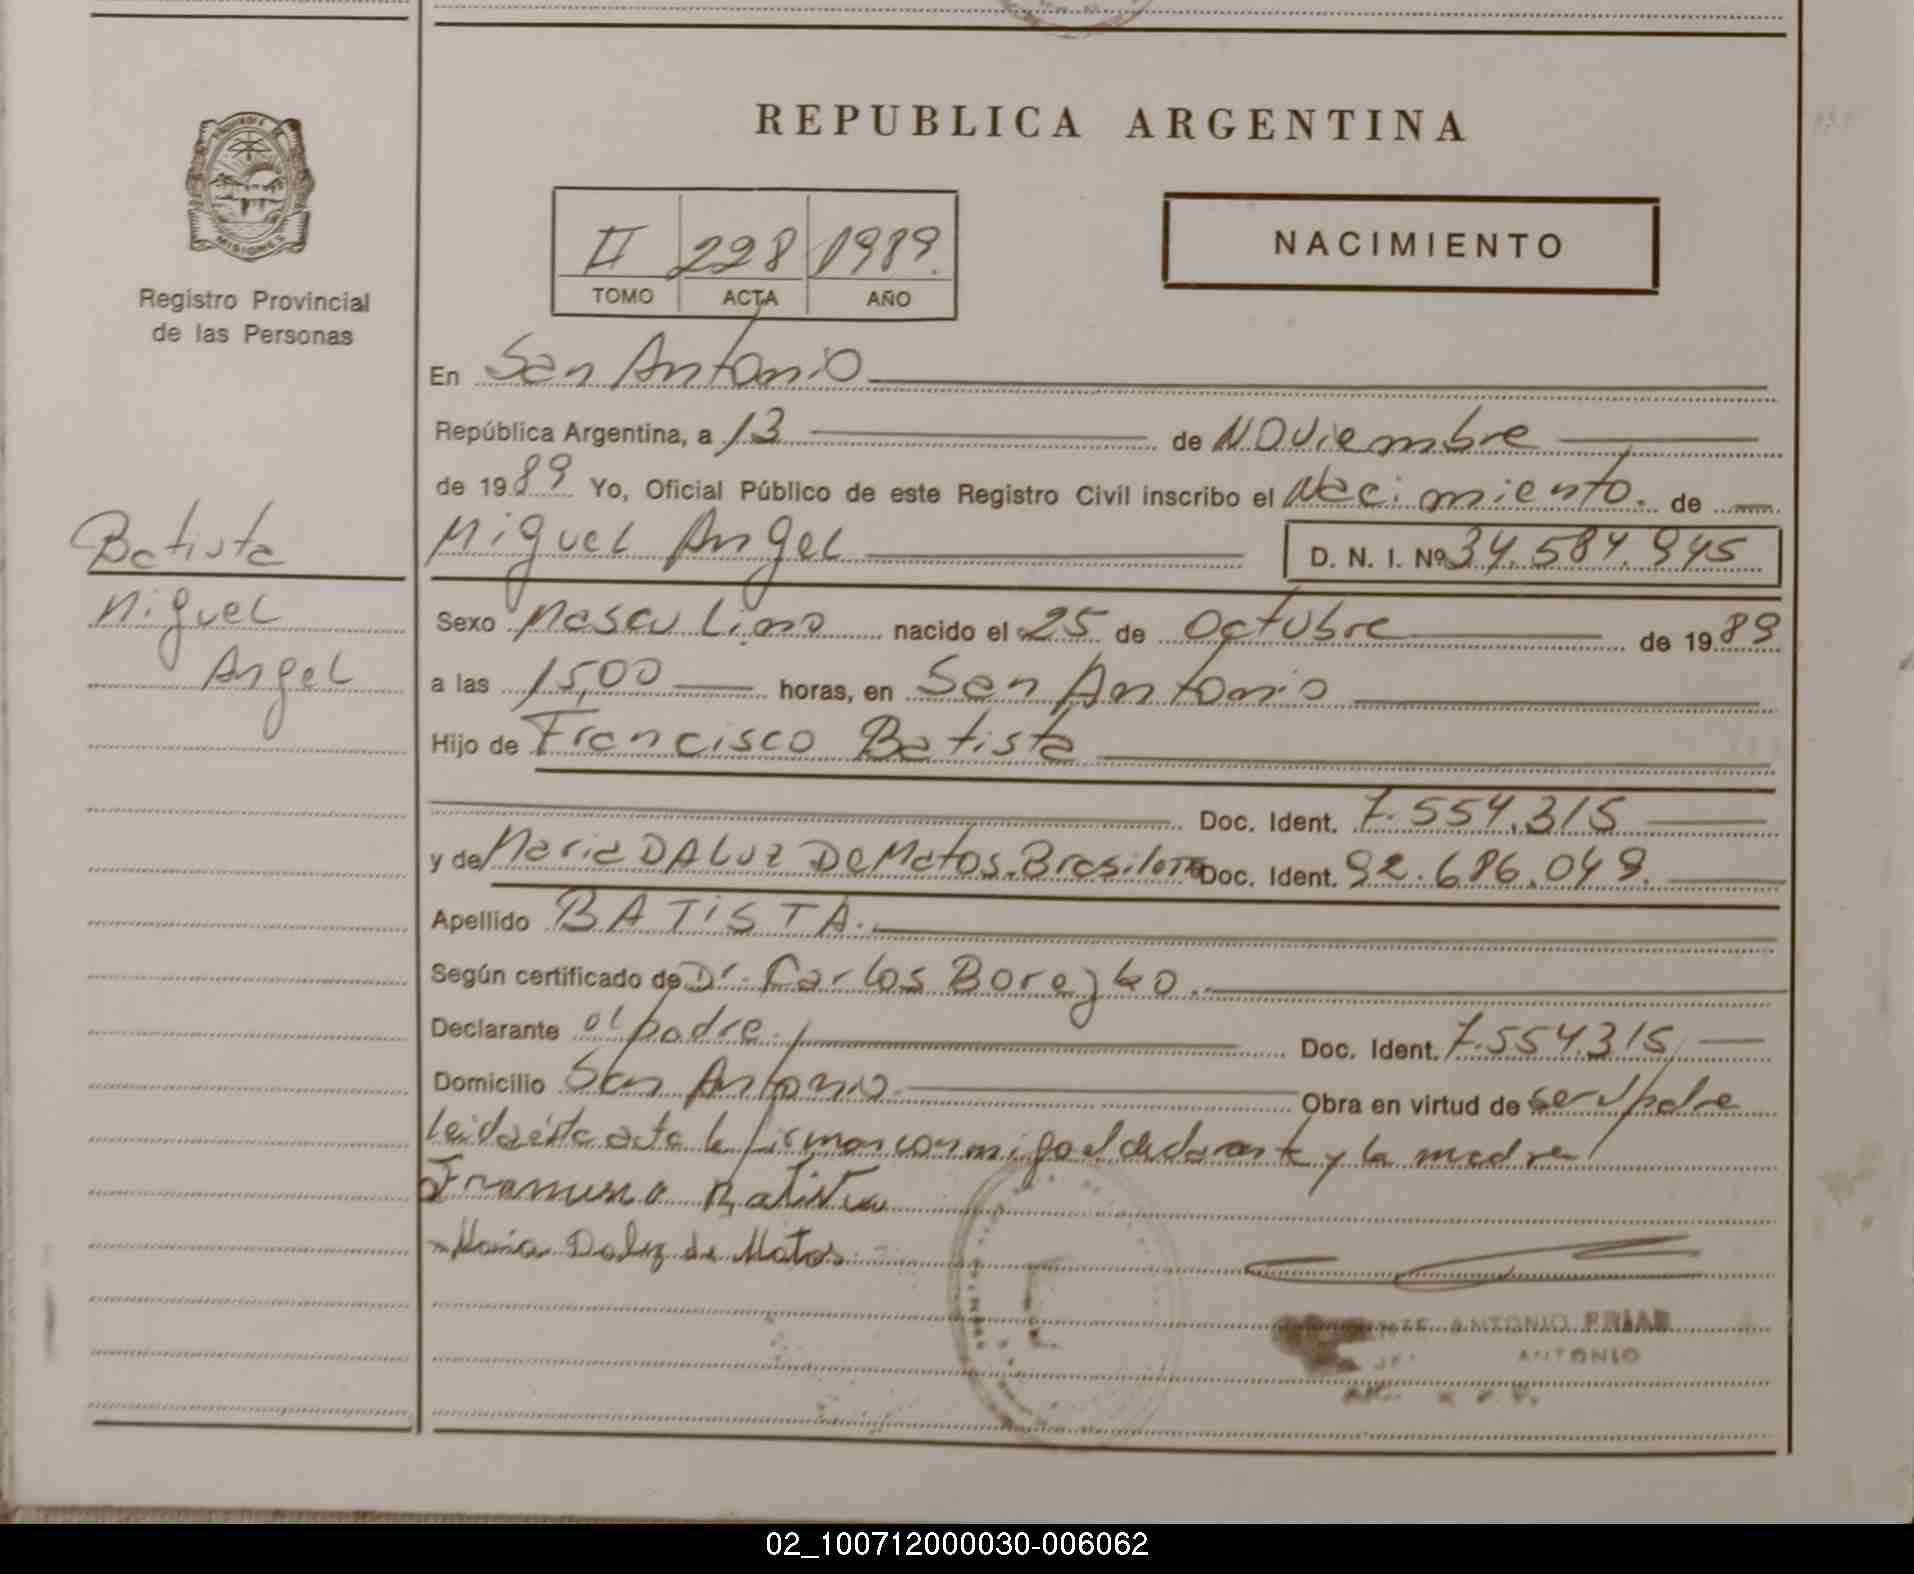 REPUBLICA ARGENTINA
MISIONES
Registro Provincial
de las Personas
II 228 1989.
TOMO ACTA AÑO
NACIMIENTO
En San Antonio
República Argentina, a 13 de Noviembre
de 1989 Yo, Oficial Público de este Registro Civil inscribo el Nacimiento. de
Batista
Miguel Angel D. N. I. Nº 34.584.945
Miguel
Angel
Sexo Masculino nacido el 25 de Octubre de 1989
a las 15,00 horas, en San Antonio
Hijo de Francisco Batista
Doc. Ident. 7.554.315
y de Maria DA LUZ DE Matos. Brasilera Doc. Ident. 92.686.049.
Apellido BATISTA.
Según certificado de Dr. Carlos
Declarante el padre. Doc. Ident. 7.554.315
Domicilio San Antonio. Obra en virtud de ser el padre
Leida esta acta la firman conmigo el declarante y la madre
Batista
Maria Daluz de Matos
ANTONIO FRIAS
ANTONIO
02_100712000030-006062